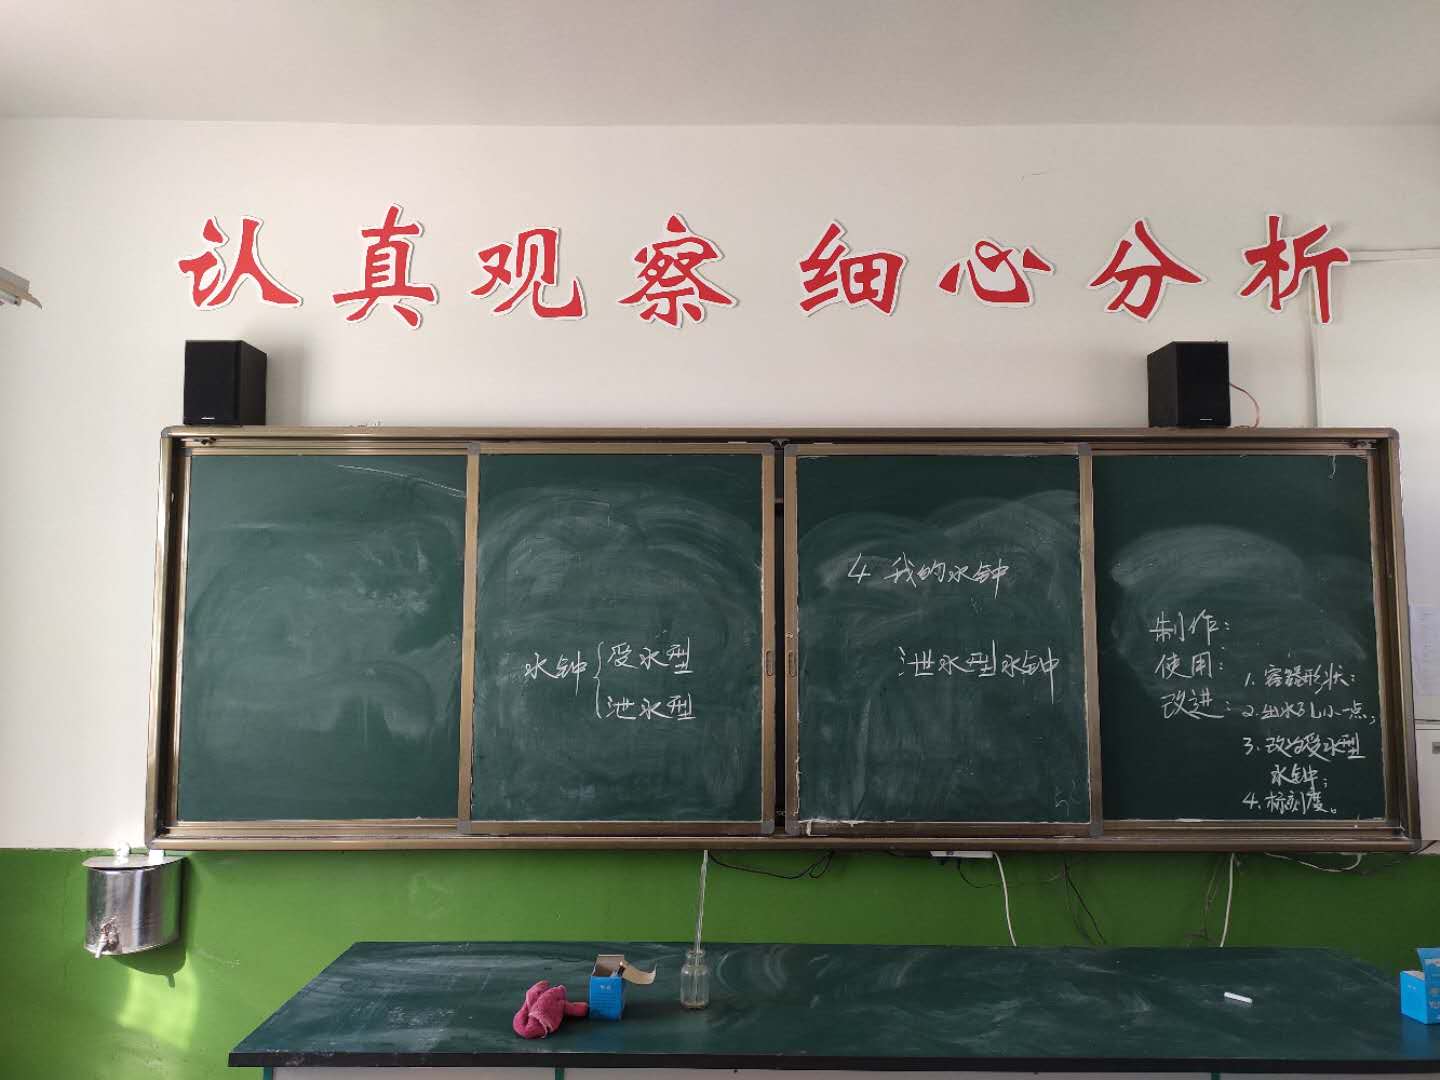 认真观察 细心分析
水钟
受水型
泄水型
4 我的水钟
泄水型水钟
制作：
使用：
改进：
1. 容器形状：
2. 出水孔小一点；
3. 改为受水型
水钟；
4. 标刻度。